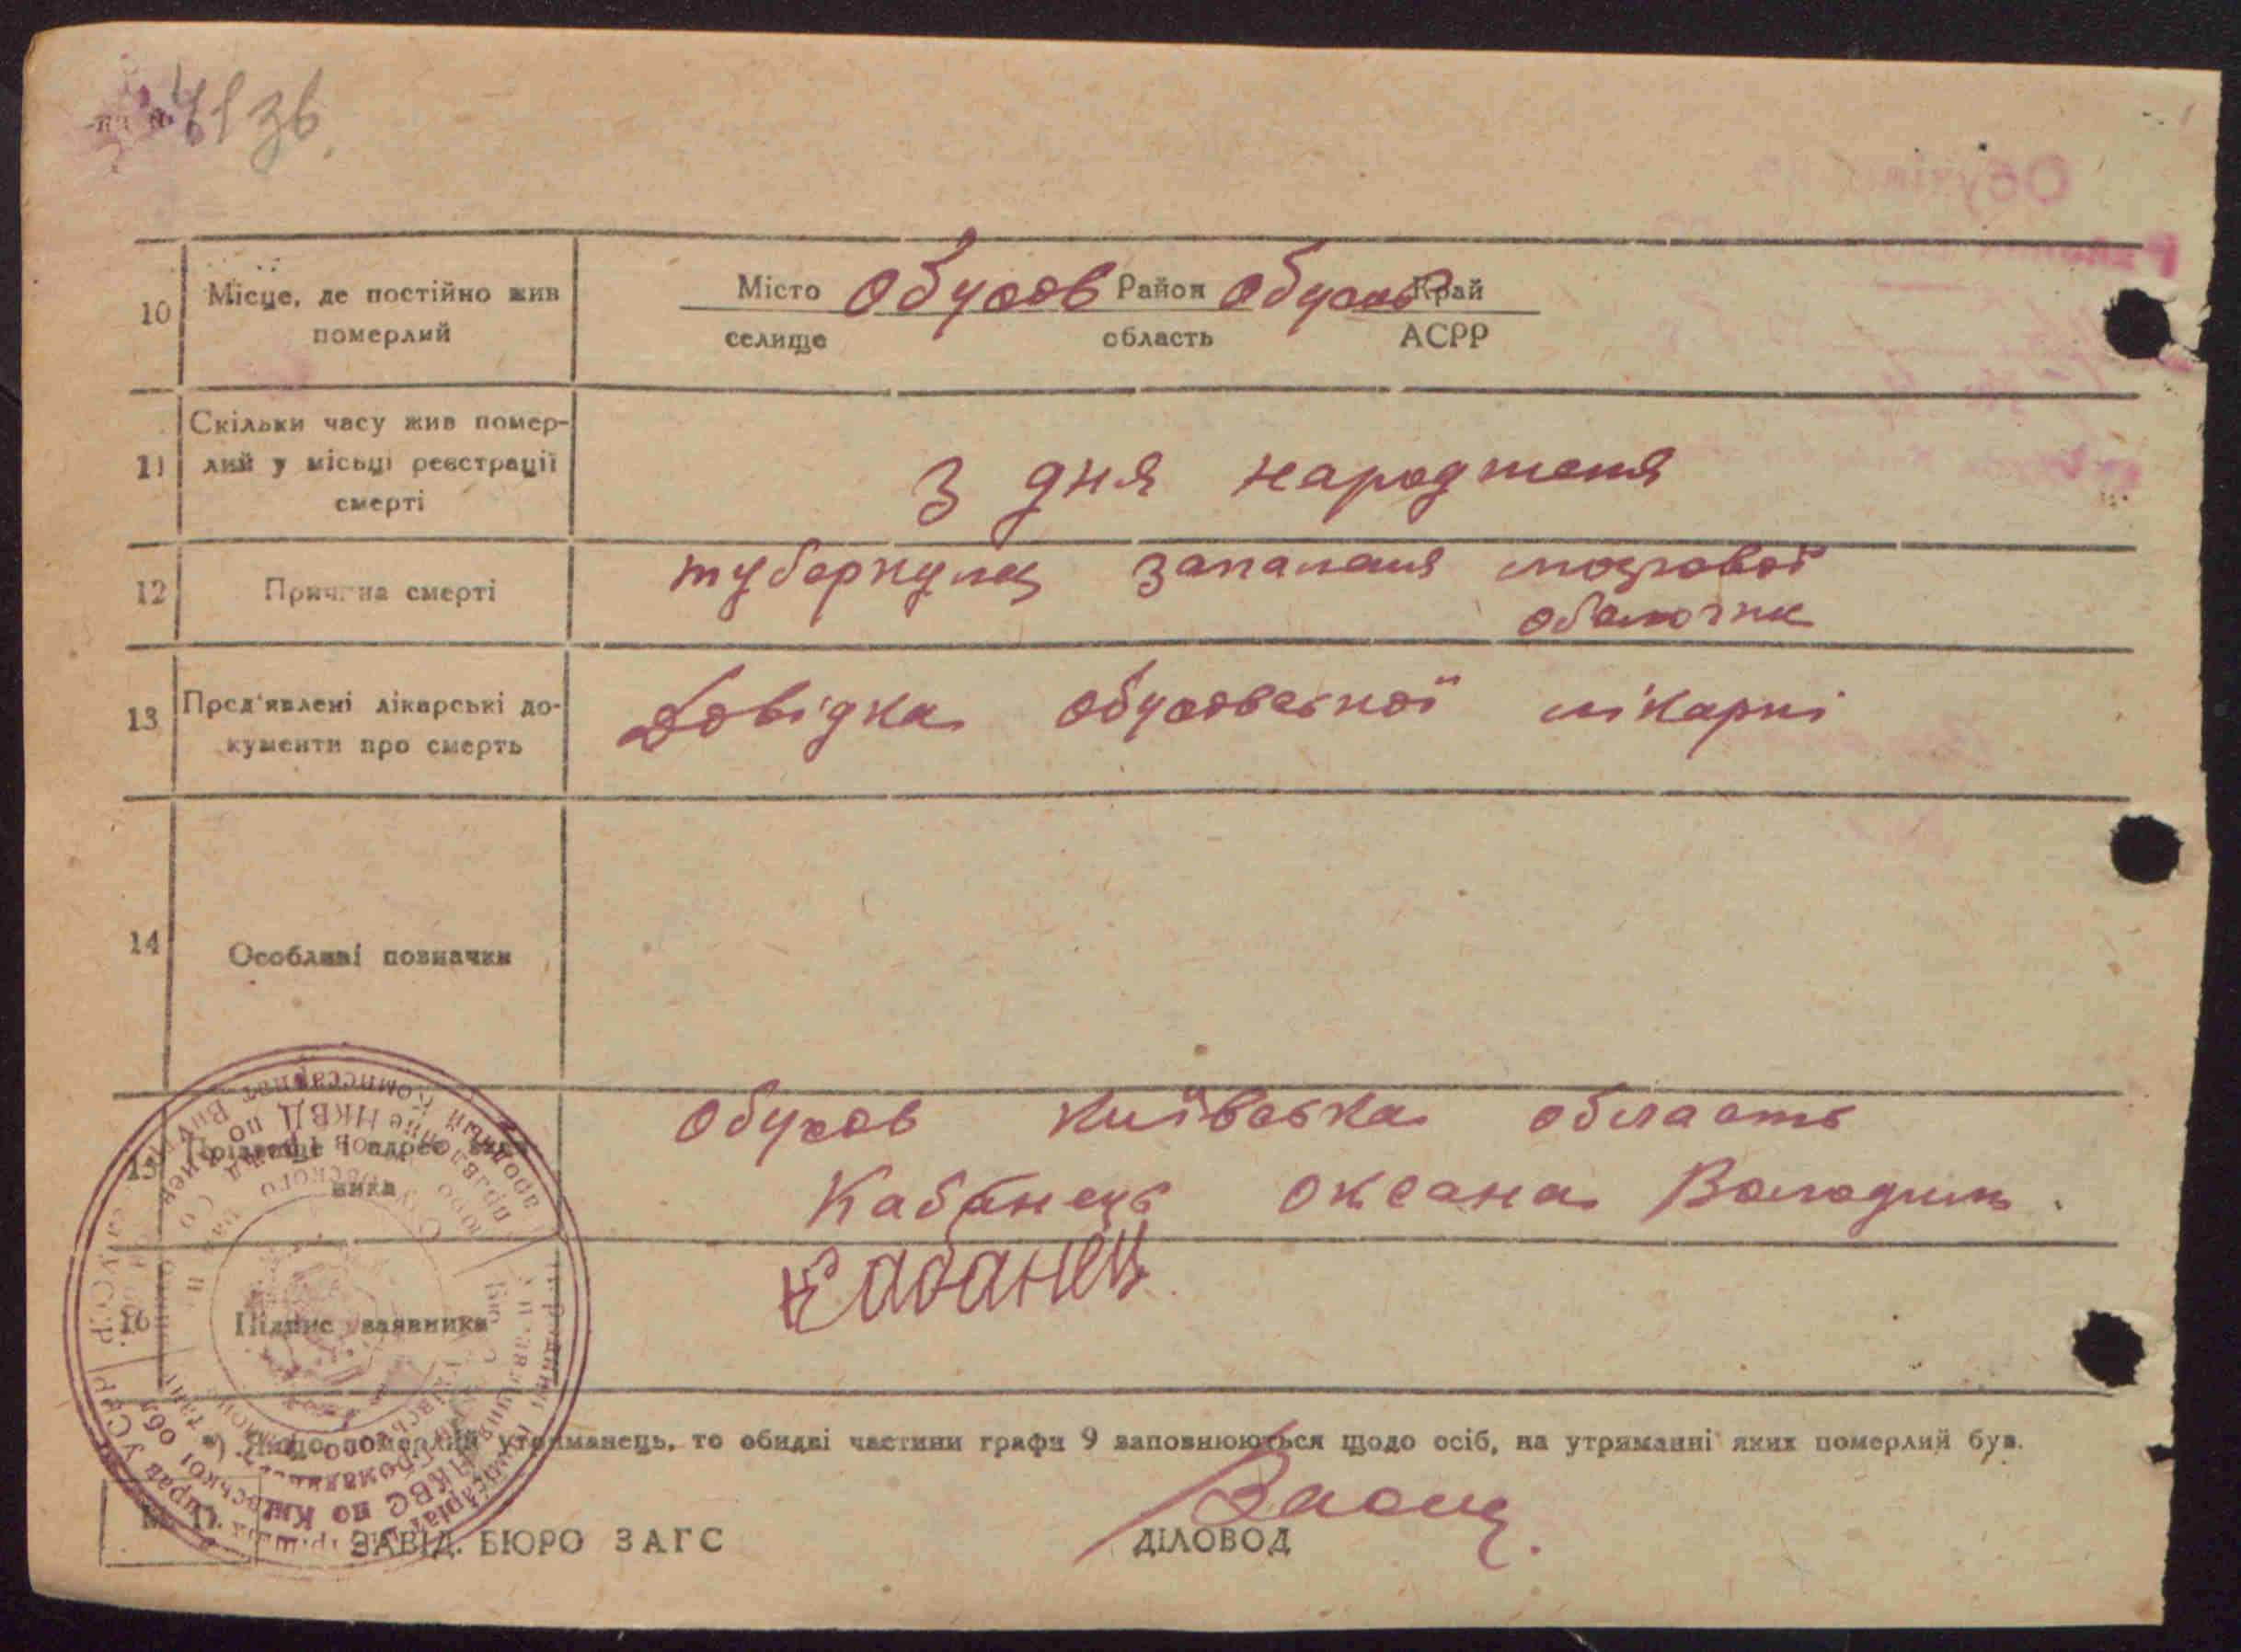 4136
10 Місце, де постійно жив померлий
Місто Обухов Район Обухов Край
селище область АСРР
11 Скільки часу жив помер-
лий у місьці реєстрації
смерті
З дня народженя
12 Причина смерті
туберкульц запаленя мозгової
оболочки
13 Пред'явлені лікарські до-
кументи про смерть
Довідка обуховської лікарні
14 Особливі позначки
15 Прізвище і адрес заяв-
ника
Обухов Київська область
Кабанець Оксана Володим.
16 Підпис заявника
Кабанец
*) Якщо померлий утриманець, то обидві частини графи 9 заповнюються щодо осіб, на утриманні яких померлий був.
М. П.
ЗАВІД. БЮРО ЗАГС
ДІЛОВОД